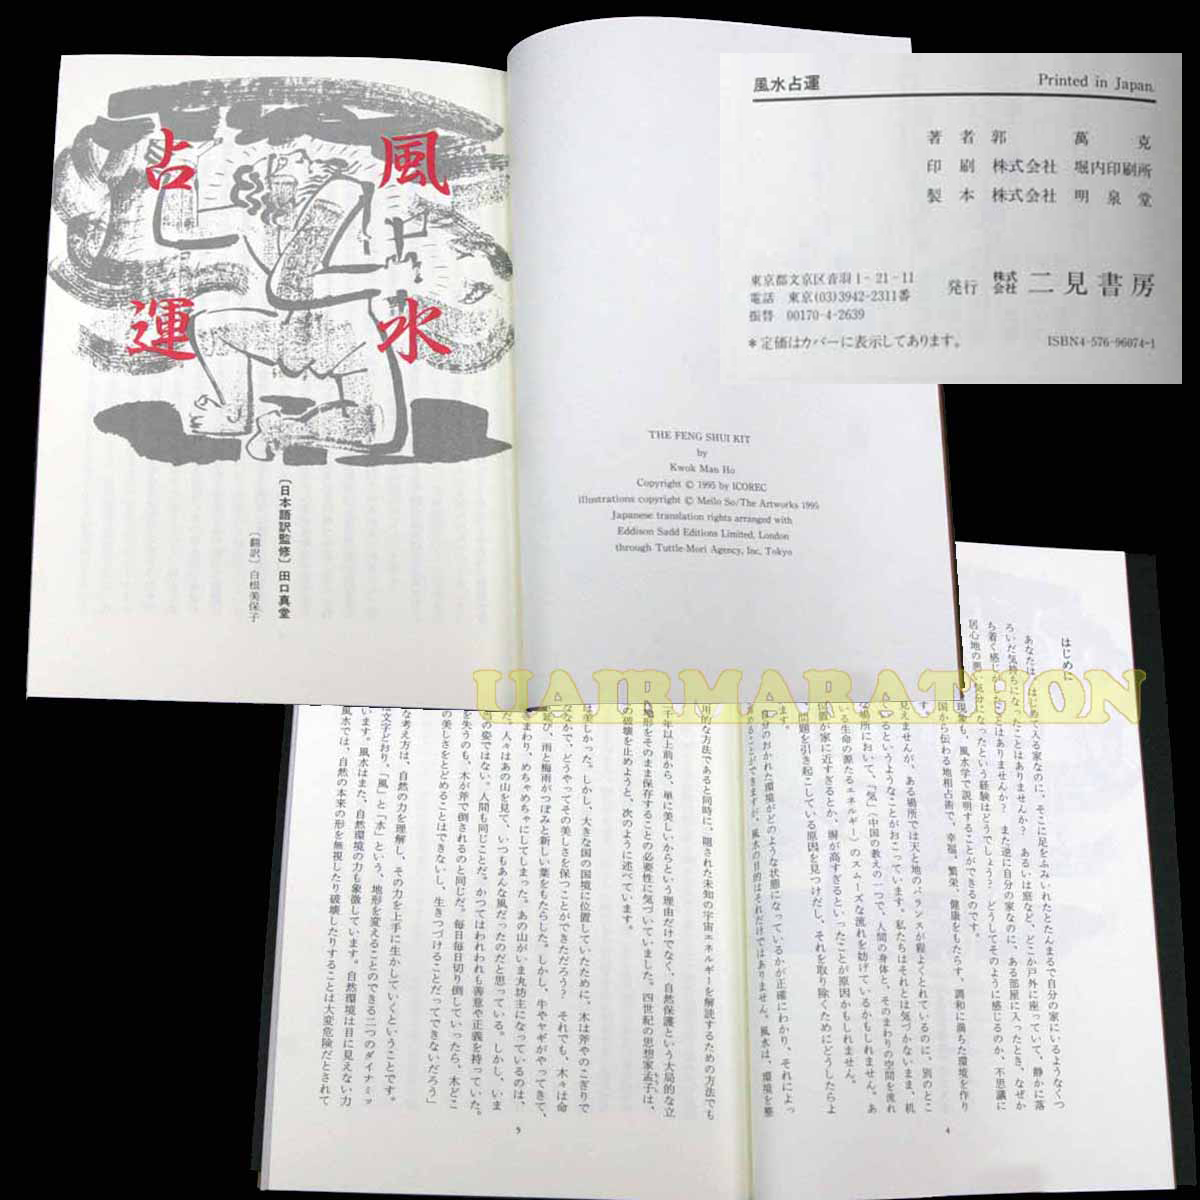 風水
占運
〔日本語訳監修〕田口真堂
〔翻訳〕白根美保子
THE FENG SHUI KIT
by
Kwok Man Ho
Copyright © 1995 by ICOREC
illustrations copyright © Meilo So/The Artworks 1995
Japanese translation rights arranged with
Eddison Sadd Editions Limited, London
through Tuttle-Mori Agency, Inc, Tokyo
風水占運 Printed in Japan.
著者 郭萬克
印刷 株式会社 堀内印刷所
製本 株式会社 明泉堂
東京都文京区音羽1-21-11
電話 東京(03)3942-2311番
振替 00170-4-2639
発行 株式会社 二見書房
*定価はカバーに表示してあります。 ISBN4-576-96074-1
UAIRMARATHON
はじめに
あなたは、はじめて入る家なのに、そこに足をふみいれたとたんまるで自分の家にいるようなくつ
ろいだ気持ちになったことはありませんか? あるいは庭など、どこか戸外に座っていて、静かに落
ち着く感じがしたことはありませんか? また逆に自分の家なのに、ある部屋に入ったとき、なぜか
居心地の悪い気分になったという経験はどうでしょう? どうしてそのように感じるのか、不思議に
現象も、風水学で説明することができるのです。
国から伝わる地相占術で、幸福、繁栄、健康をもたらす、調和に満ちた環境を作り
す。
見えませんが、ある場所では天と地のバランスが程よくとれているのに、別のとこ
いるというようなことがおこっています。私たちはそれとは気づかないまま、机
な場所において、「気」(中国の教えの一つで、人間の身体と、そのまわりの空間を流れ
いる生命の源たるエネルギー)のスムーズな流れを妨げているかもしれません。あ
位置が家に近すぎるとか、塀が高すぎるといったことが原因かもしれません。
、問題を引き起こしている原因を見つけだし、それを取り除くためにどうしたらよ
ます。
、自分のおかれた環境がどのような状態になっているかが正確にわかり、それによっ
めることができますが、風水の目的はそれだけではありません。風水は、環境を整
4
用的な方法であると同時に、隠された未知の宇宙エネルギーを解読するための方法でも
二千年以上前から、単に美しいからという理由だけでなく、自然保護という大局的な立
地形をそのまま保存することの必要性に気づいていました。四世紀の思想家孟子は、
の破壊を止めようと、次のように述べています。
は美しかった。しかし、大きな国の国境に位置していたために、木は斧やのこぎりで
ななかで、どうやってその美しさを保つことができただろう? それでも、木々は命
び、雨と梅雨がつぼみと新しい葉をもたらした。しかし、牛やヤギがやってきて、
きまわり、めちゃめちゃにしてしまった。あの山がいま丸坊主になっているのは、
だ。人々はあの山を見て、いつもあんな風だったのだと思っている。しかし、いま
の姿ではない。人間も同じことだ。かつてはわれわれも善意や正義を持っていた。
を失うのも、木が斧で倒されるのと同じだ。毎日毎日切り倒していったら、木どこ
の美しさをとどめることはできないし、生きつづけることだってできないだろう」
な考え方は、自然の力を理解し、その力を上手に生かしていくということです。
は文字どおり、「風」と「水」という、地形を変えることのできる二つのダイナミッ
います。風水はまた、自然環境の力も象徴しています。自然環境は目に見えない力
風水では、自然の本来の形を無視したり破壊したりすることは大変危険だとされて
5